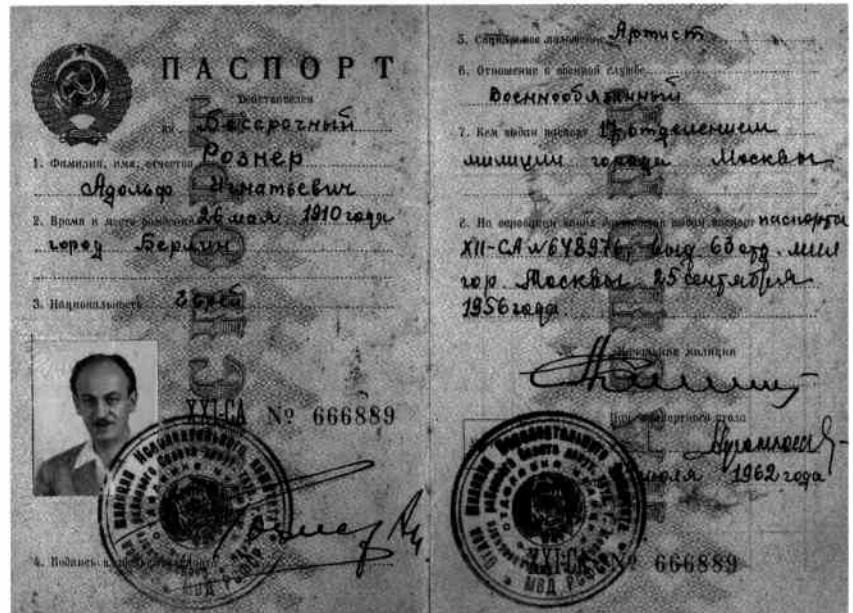 ПАСПОРТ
Действителен
на Бессрочный
1. Фамилия, имя, отчество Рознер
Адольф Игнатьевич
2. Время и место рождения 26 мая 1910 года
город Берлин
3. Национальность Еврей
XXI-СА № 666889
4. Подпись
5. Социальное положение Артист
6. Отношение к военной службе
Военнообязанный
7. Кем выдан паспорт 17 отделением
милиции города Москвы
8. На основании каких документов выдан паспорт паспорта
XII-СА № 648976, выд 63 отд. мил
гор. Москвы 25 сентября
1956 года
Начальник милиции
Нач. паспортного стола
июля 1962 года
XXI-СА № 666889
МВД РСФСР
МВД РСФСР